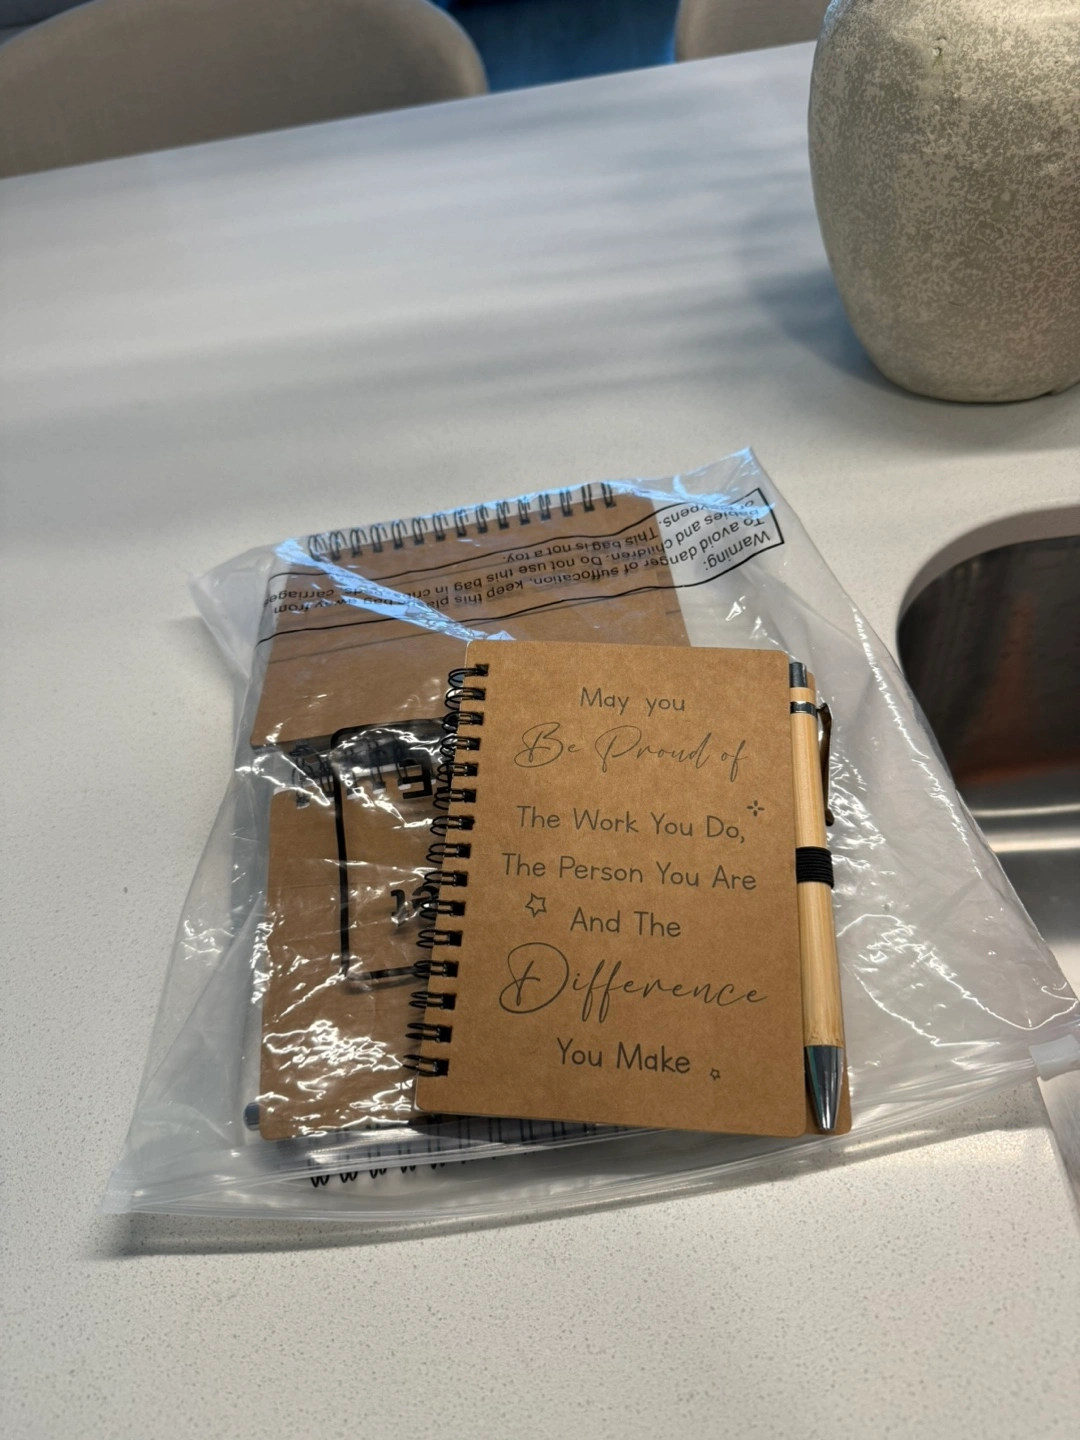 Warning:
To avoid danger of suffocation, keep this plastic bag away from
babies and children. Do not use this bag in cribs, beds, carriages
or playpens. This bag is not a toy.
May you
Be Proud of
The Work You Do,
The Person You Are
And The
Difference
You Make